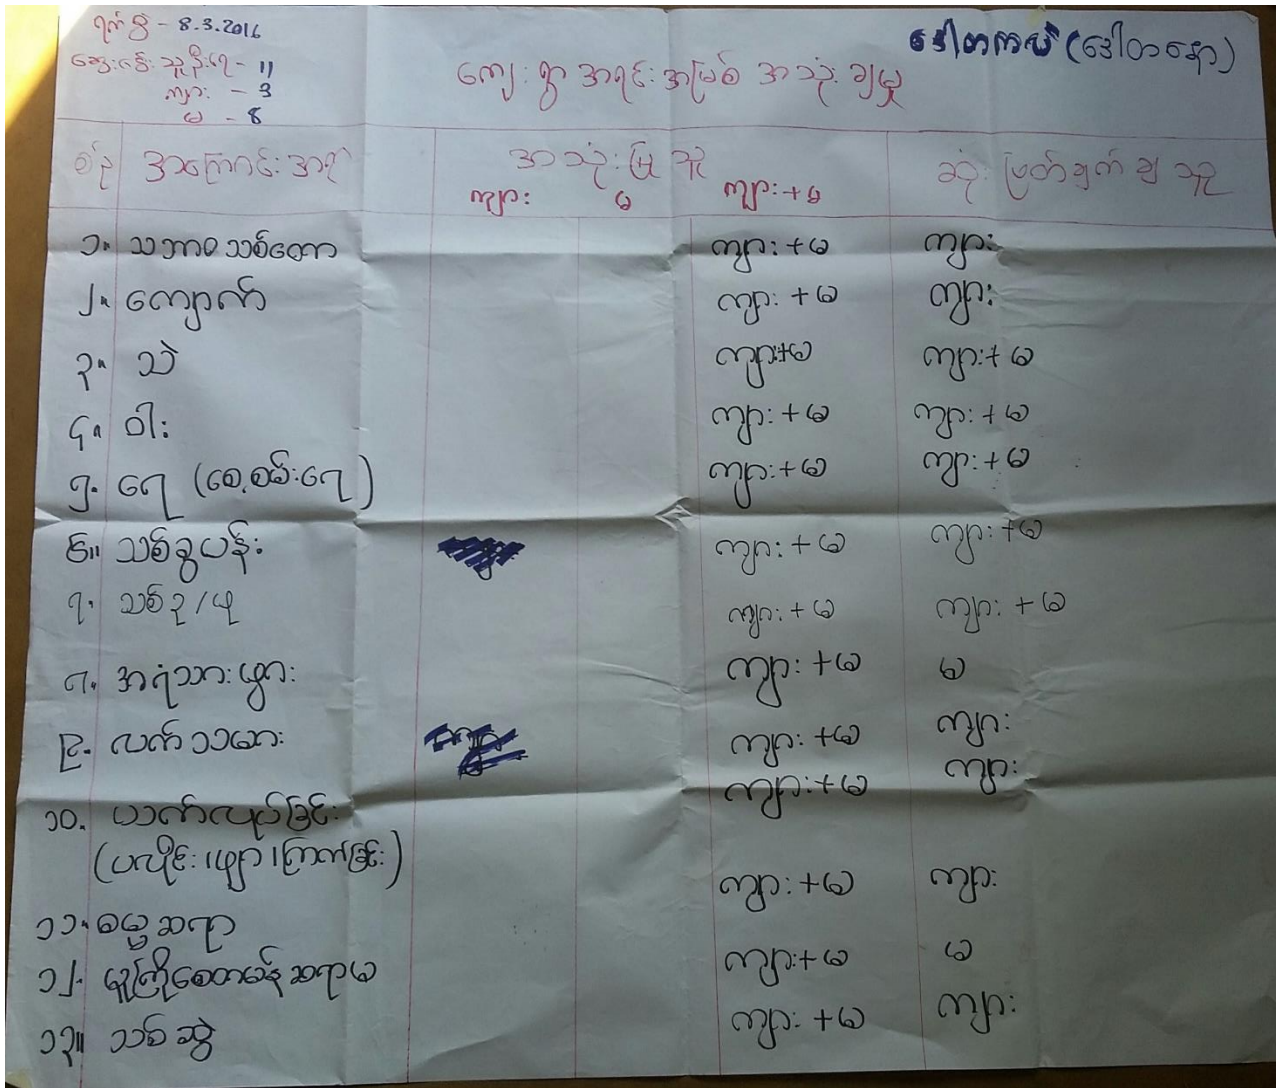 ရက်စွဲ - 8.3.2016
ဆွေးနွေးသူဦးရေ - 11
ကျား - 3
မ - 8
ဒေါတကလဲ (ဒေါတနော)
ကျေးရွာအရင်းအမြစ် အသုံးချမှု
စဉ် အကြောင်းအရာ အသုံးပြုသူ ဆုံးဖြတ်ချက်ချသူ
ကျား မ ကျား+မ
၁။ သဘာဝသစ်တော ကျား+မ ကျား
၂။ ကျောက် ကျား+မ ကျား
၃။ သဲ ကျား+မ ကျား+မ
၄။ ဝါး ကျား+မ ကျား+မ
၅။ ရေ (စေ့စမ်းရေ) ကျား+မ ကျား+မ
၆။ သစ်ခွပန်း ကျား+မ ကျား+မ
၇။ သစ်ဥ/ဖု ကျား+မ ကျား+မ
၈။ အရံသားဖွား ကျား+မ မ
၉။ လက်သမား ကျား+မ ကျား
၁၀။ ယက်လုပ်ခြင်း ကျား+မ ကျား
(ပလိုင်း၊ဖျာ၊ကြက်ခြင်း)
၁၁။ ဓမ္မဆရာ ကျား+မ ကျား
၁၂။ မူကြိုစေတမန်ဆရာမ ကျား+မ မ
၁၃။ သစ်ဆွဲ ကျား+မ ကျား